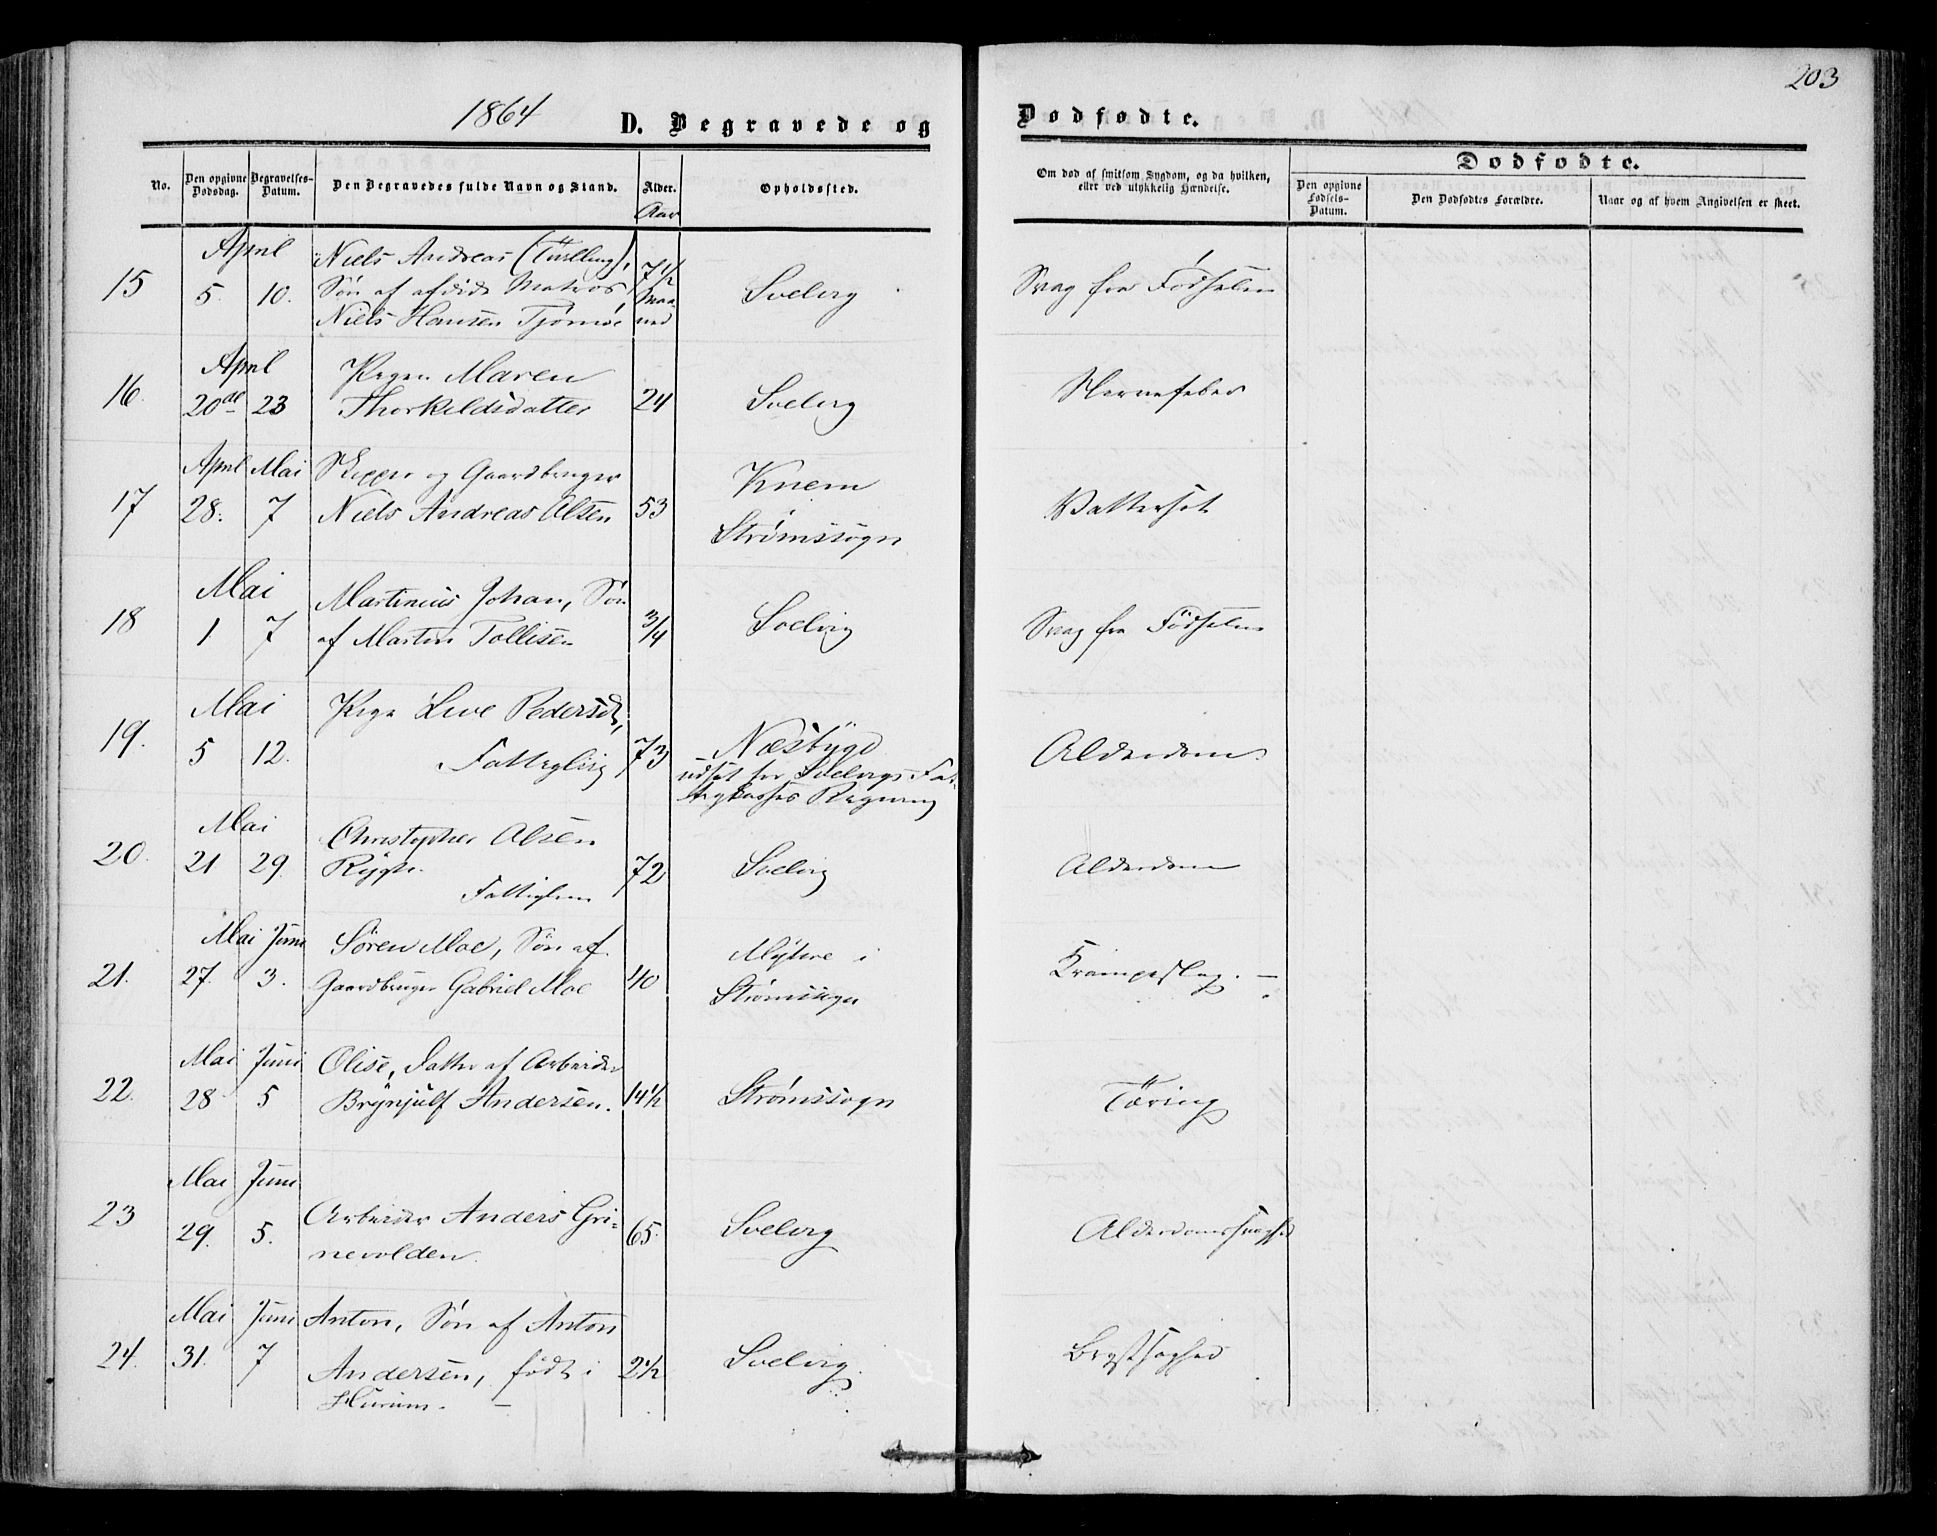 203
1864 D. Begravede og Dødfødte.
No. Den opgivne Dødsdag. Begravelses-Datum. Den Begravedes fulde Navn og Stand. Alder. Opholdssted. Om død af smitsom Sygdom, og da hvilken, eller ved ulykkelig Hændelse. Dødfødte.
Den opgivne Fødsels-Datum. Den Dødfødtes Forældre. Naar og af hvem Angivelsen er skeet.
Aar
April Niels Andreas (Tvilling), 7 1/2
15 5. 10. Søn af afdøde Matros Maa- Svelvig Svag fra Fødselen
Niels Hansen Tjømøe ned
April Pigen Maren
16. 20de 23 Thorkeldsdatter 24 Svelvig Nervefeber
April Mai Skipper og Gaardbruger Knem
17 28. 7 Niels Andreas Olsen 53 Vattersot
Strømssogn
Mai Martinius Johan, Søn
18 1 7 af Martin Tollisen 3/4 Svelvig Svag fra Fødselen
Mai Pige Live Pedersdt,
19. 5 12. Fatteglig 73 Næsbygd Alderdom
udsat for Svelvigs Fat-
tigkasses Regning
Mai Christopher Olsen
20. 21 29. 72 Svelvig Alderdom
Fattiglem
Mai Juni Søren Moe, Søn af
21. 27. 3. Gaardbruger Gabriel Moe 40 i Krampeslag. –
Strømssogn
Mai Juni Olise, Datter af Arbeider
22. 28 5 Brynjulf Andersen. 14 1/2 Strømssogn Tæring
Mai Juni
23 29. 5. Arbeider Anders Gri- 65. Svelvig Alderdomssvaghed
nevolden.
Mai Juni Anton, Søn af Anton
24. 31. 7 Andersen, født i 2 1/2 Svelvig. Brystsyghed
Hurum. –